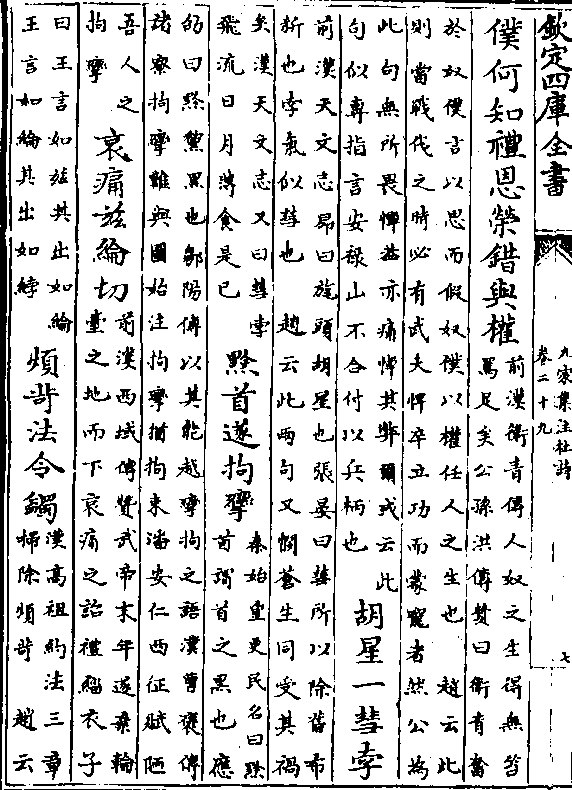 欽定四庫全書
九家集注杜詩
卷二十九
七
僕何知禮恩榮錯與權
前漢衛青傳人奴之生得無笞
罵足矣公孫洪傳贊曰衛青奮
於奴僕言以思而假奴僕以權任人之生也 趙云此
則當戰伐之時必有武夫悍卒立功而蒙寵者然公為
此句無所畏憚茲亦痛悼其弊爾或云此
句似專指言安祿山不合付以兵柄也
胡星一彗孛
前漢天文志昴曰旄頭胡星也張晏曰彗所以除舊布
新也孛氣似彗也 趙云此兩句又憫蒼生同受其禍
矣漢天文志又曰彗孛
飛流日月薄食是已
黔首遂拘攣
秦始皇更民名曰黔
首謂首之黑也應
劭曰黔黧黑也鄒陽傳以其能越攣拘之語漢曹褒傳
諸寮拘攣難與圖始注拘攣猶拘束潘安仁西征賦陋
吾人之
拘攣
哀痛茲綸切
前漢西域傳贊武帝末年遂棄輪
臺之地而下哀痛之詔禮緇衣子
曰王言如絲其出如綸
王言如綸其出如綍
煩苛法令蠲
漢高祖約法三章
掃除煩苛 趙云